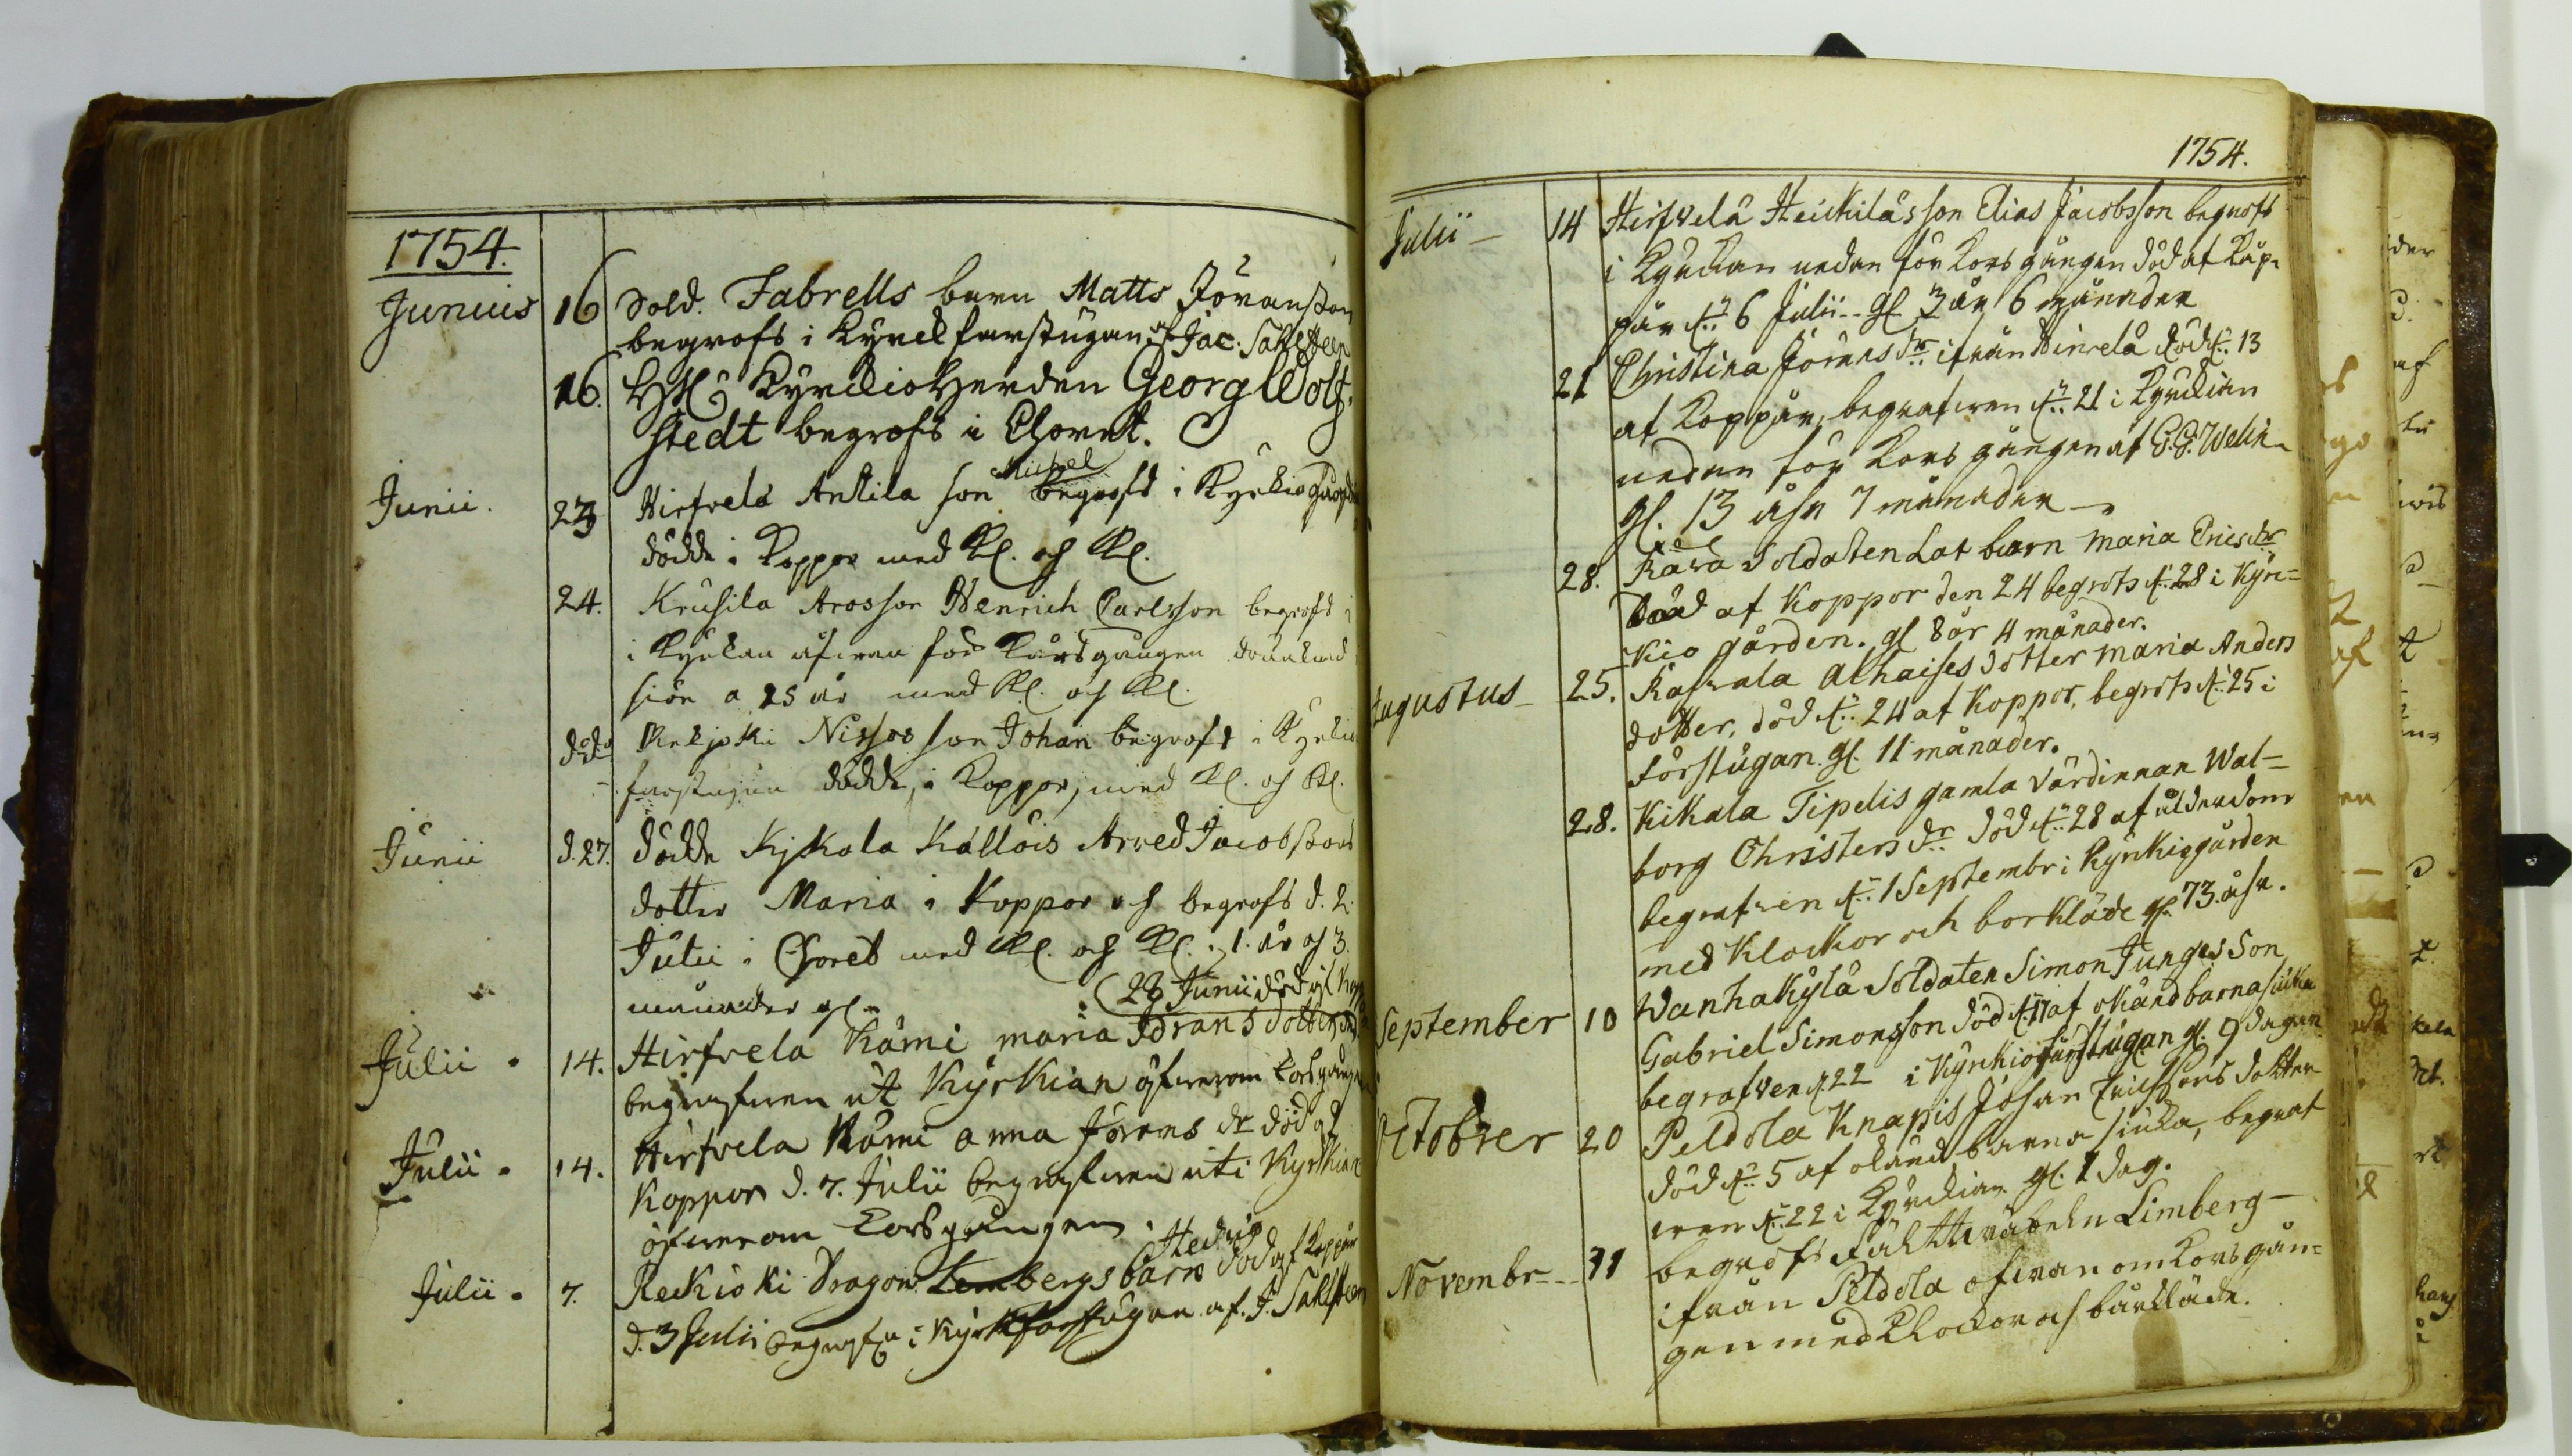 1754.
Junius 16 Sold. Fabrells barn Matts Jöransson
begrofs i Kyrckfarstugan af Jac. Sahlsteen
16. Kyrckioherden Georg Wolf-
stedt begrofs i Choret.
Michel
Junii. 23 Hirfvelä Anttila son begrofs i Kyrkiogården
dödde i Koppor med Kl. och Kl.
24. Krusila Arosson Henrich Carlsson begrofs i
i Kyrkan ofwan för Korsgången
siön a 25 år med Kl. och Kl.
dito Reckjoki Nissos son Johan begrofs i Kyrkio
farstugun dödde i Koppor, med Kl. och Kl.
Junii d. 27. dödde Kjkala Kallois Arved Jacobssons
dotter Maria i Koppor och begrofs d. 2.
Julii i Choret med Kl. och Kl. 1. år och 3.
månader gl.
28 Junii död af Kopp
Julii. 14. Hirfvela Kämi maria Jörans dotter
begrafwen ut Kyrkian öfwerom Korsgången
Julii. 14. Hirfvela Kämi anna Jörans dr död af
Koppor d. 7. Julii begrafwen uti Kyrkian
öfwerom Corsgången.
Hedvig
Julii. 7. Reckioki Dragon Lembergs barn död af Koppor
d. 3 Julii begrafn i Kyrkfarstugan af J. Sahlsteen
1754.
Julii 14 Hirfvelä Heickiläs son Elias Jacobsson begrofs
i Kyrckian nedan för Korsgången död af Kåp-
pår d. 6 Julii gl. 3 år 6 månader
21 Christina Jörans dr ifrån Hirvelä död d. 13
af Koppår, begrafwen d. 21 i Kyrckian
nedan för Korsgången af G. G. Welin
gl. 13 åhr 7 månader
28. Rärä Soldaten Lat barn maria Erics dr
död af Koppor den 24 begrofs d. 28 i Kyr=
kio gården. gl 8 år 4 månader.
Augustus 25. Kafvala Alhaises dotter maria Anders
dotter, död d. 24 af Koppor, begrofs d. 25 i
förstugan. gl. 11 månader.
28. Kikala Tipelis gamla värdinnan Wal=
borg Christers dr död d. 28 af ålderdom
begrafven d. 1 Septembr i Kyrkiogården
med Klockor och borkläde gl. 73. åhr.
September 10 Wanhakylä Soldaten Simon Junges Son
Gabriel Simonsson död d. 17 af okänd barnasiuka
begrafven d. 22 i Kyrkioförstugan gl. 9 dagar
October 20 Peldola Knapis Johan Ericssons dotter
död d. 5 af okänd barna siuka, begraf
wen d. 22 i Kyrckian gl. 1 dag.
Novembr 31 begrofs Limberg
ifrån Peldola ofwan om Korsgån=
gen med Klockor och bårkläde.